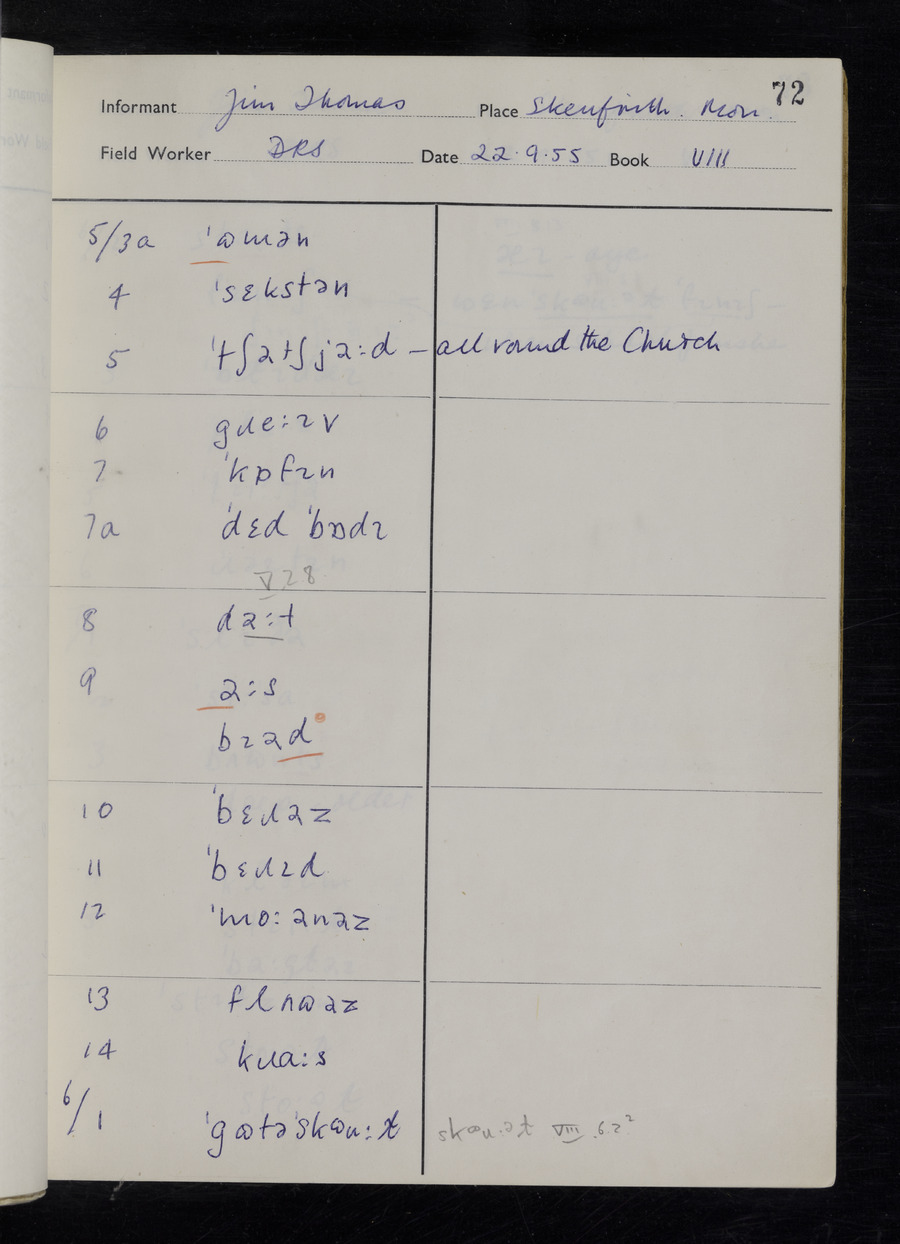 72
Informant Jim Thomas Place Skenfrith. Mon.
Field Worker DRS Date 22.9.55 Book VIII
5/3a ˈɷmən
4 ˈsɛkstən
5 ˈtʃətʃjə:d – all round the Church
6 gɹe:ɪv
7 ˈkɒfɪn
7a ˈdɛd ˈbɒdɪ
V.28
8 də:t
9 a:s
bɪəd
10 ˈbɛɹəz
11 ˈbɛɹɪd
12 ˈmo:ənəz
13 flʌɷəz
14 kɹɑ:s
6/1 ˈgɷtəˈskɷu:ɫ skɷu:əɫ VIII.6.2²